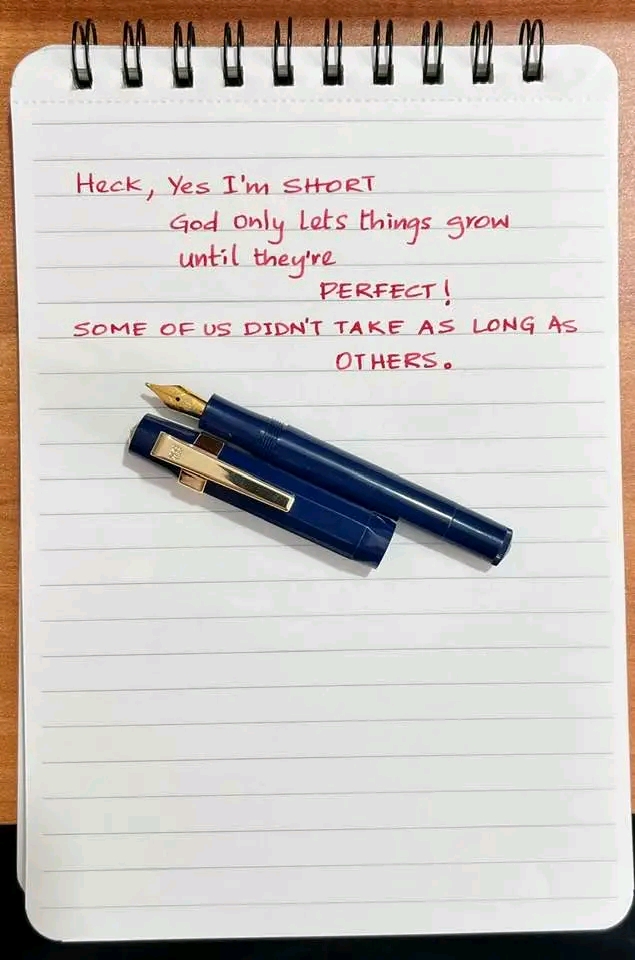 Heck, Yes I'm SHORT
God only lets things grow
until they're
PERFECT!
SOME OF US DIDN'T TAKE AS LONG AS
OTHERS.